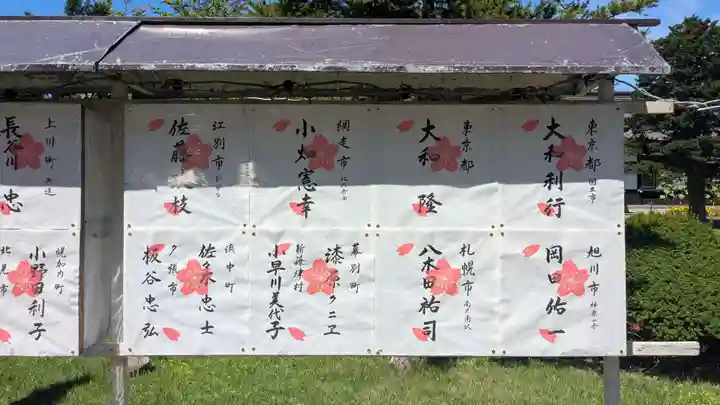 東京都 国立市
大和利行
東京都
大和 隆
網走市
小畑憲幸
江別市
佐藤 枝
上川町 共進
長谷川 忠
旭川市
岡田佑一
札幌市
八木田祐司
幕別町
漆原クニヱ
新篠津村
小早川美代子
浜中町
佐木忠士
夕張市
板谷忠弘
幌加内町
小野田利子
北見市